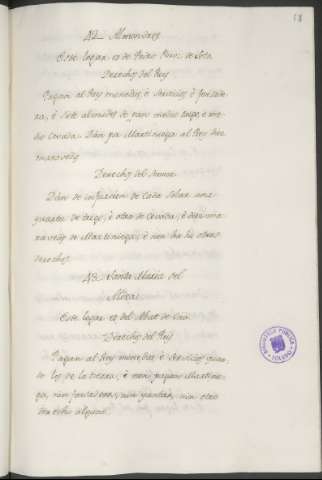 18
42 Almendres
Este logar es de Pedro Ruiz de Soto
Derechos del Rey
Pagan al Rey monedas, é servicios, é fonsade-
ra, é siete almudes de pan medio trigo, é me-
dio cevada. Dan por Martiniega al Rey diez
maravedis
Derechos del Sennor
Dan de infurcion de cada solar una
de trigo, é otra de cevada, é diez ma-
ravedis de Martiniega, é non ha hi otros
derechos
43 Santa Maria del
Este logar es del Abat de
Derechos del Rey
Pagan al Rey monedas é servicios quan-
do los de la tierra, é non pagan Martinie-
ga, nin fonsadera, nin yantar, nin otro
derecho alguno.
BIBLIOTECA PUBLICA
TOLEDO